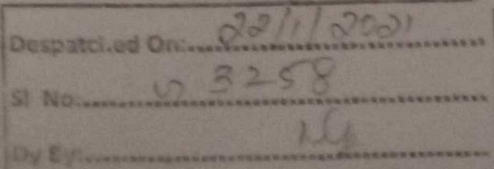 Despatched On: 22/1/2021
Sl No. S 3258
Dy By: